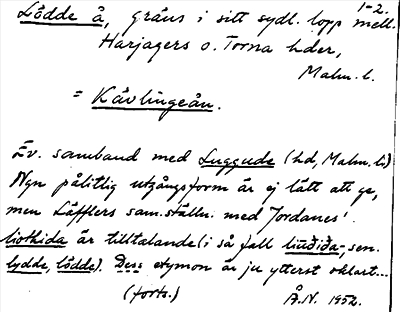 1-2.
Lödde å, gräns i sitt sydl. lopp mell.
Harjagers o. Torna hder,
Malm. l.
= Kävlingeån.
Ev. samband med Luggude (hd, Malm. l.)
Ngn pålitlig utgångsform är ej lätt att ge,
men Läfflers sam.ställn. med Jordanes'
liothida är tilltalande (i så fall liuðiða-, sen.
lydde, lödde). Dess etymon är ju ytterst oklart...
(forts.) Å.N. 1952.